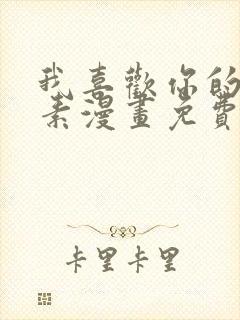 我喜歡你的
素漫畫免費
卡里卡里